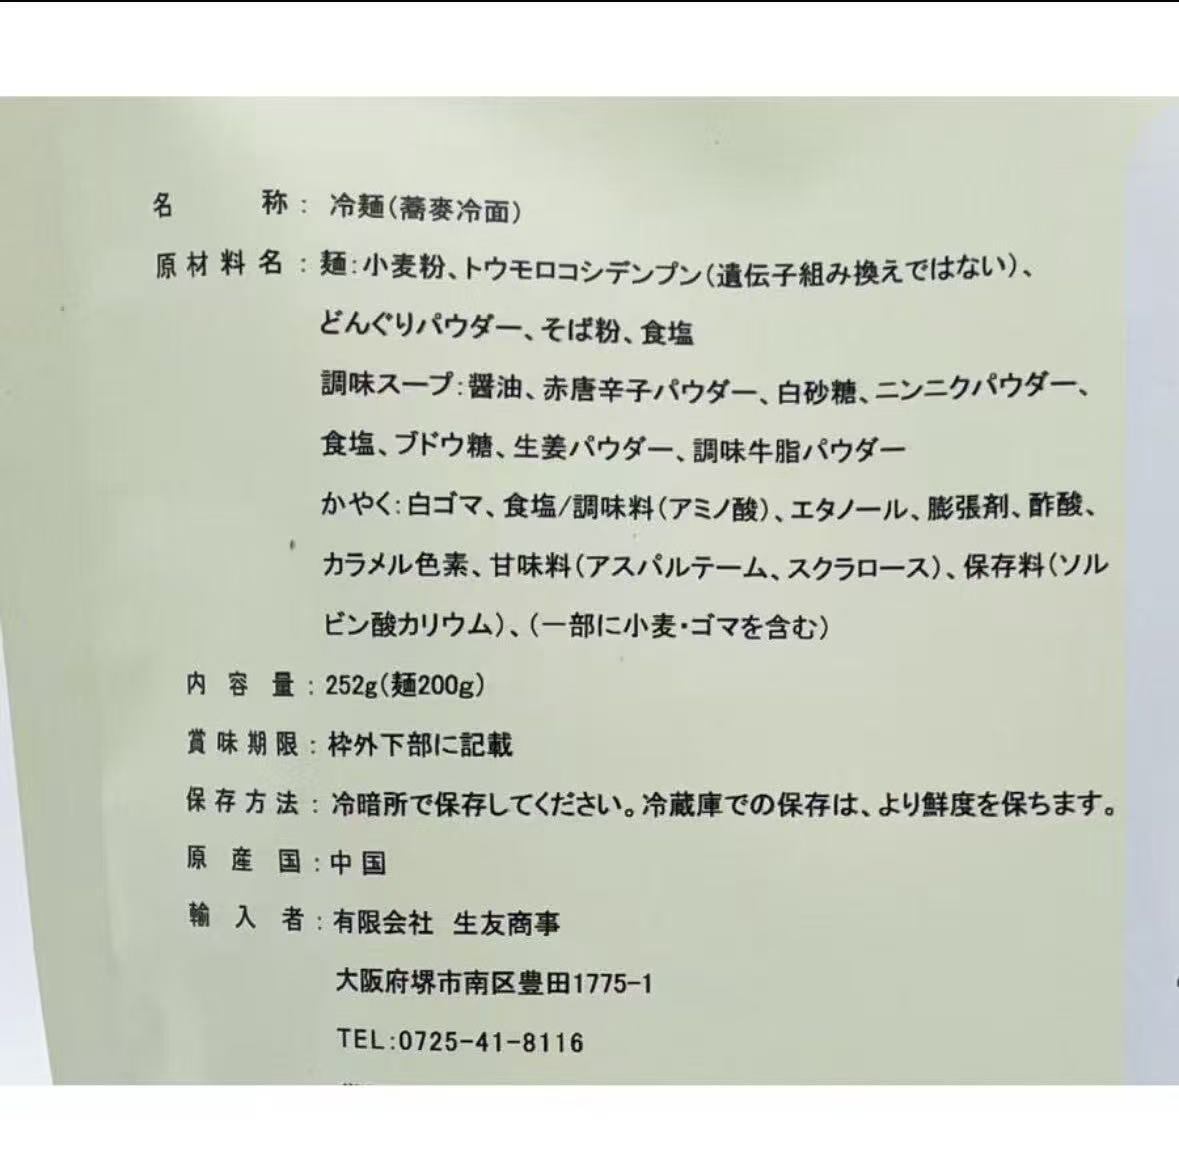 名称：冷麺(蕎麥冷面)
原材料名：麺:小麦粉、トウモロコシデンプン(遺伝子組み換えではない)、
どんぐりパウダー、そば粉、食塩
調味スープ:醤油、赤唐辛子パウダー、白砂糖、ニンニクパウダー、
食塩、ブドウ糖、生姜パウダー、調味牛脂パウダー
かやく:白ゴマ、食塩/調味料(アミノ酸)、エタノール、膨張剤、酢酸、
カラメル色素、甘味料(アスパルテーム、スクラロース)、保存料(ソル
ビン酸カリウム)、(一部に小麦・ゴマを含む)
内容量：252g(麺200g)
賞味期限：枠外下部に記載
保存方法：冷暗所で保存してください。冷蔵庫での保存は、より鮮度を保ちます。
原産国：中国
輸入者：有限会社 生友商事
大阪府堺市南区豊田1775-1
TEL:0725-41-8116